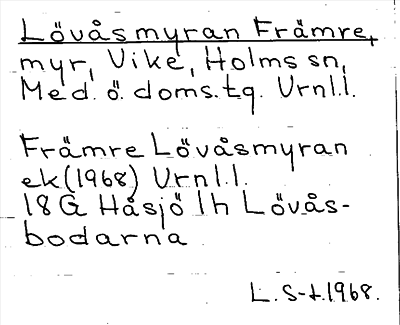 Lövåsmyran Främre,
myr, Vike, Holms sn,
Med. ö. doms.tg. Urnl.l.
Främre Lövåsmyran
ek(1968) Urnl.l.
18 G Håsjö 1h Lövås-
bodarna
L. S-t.1968.